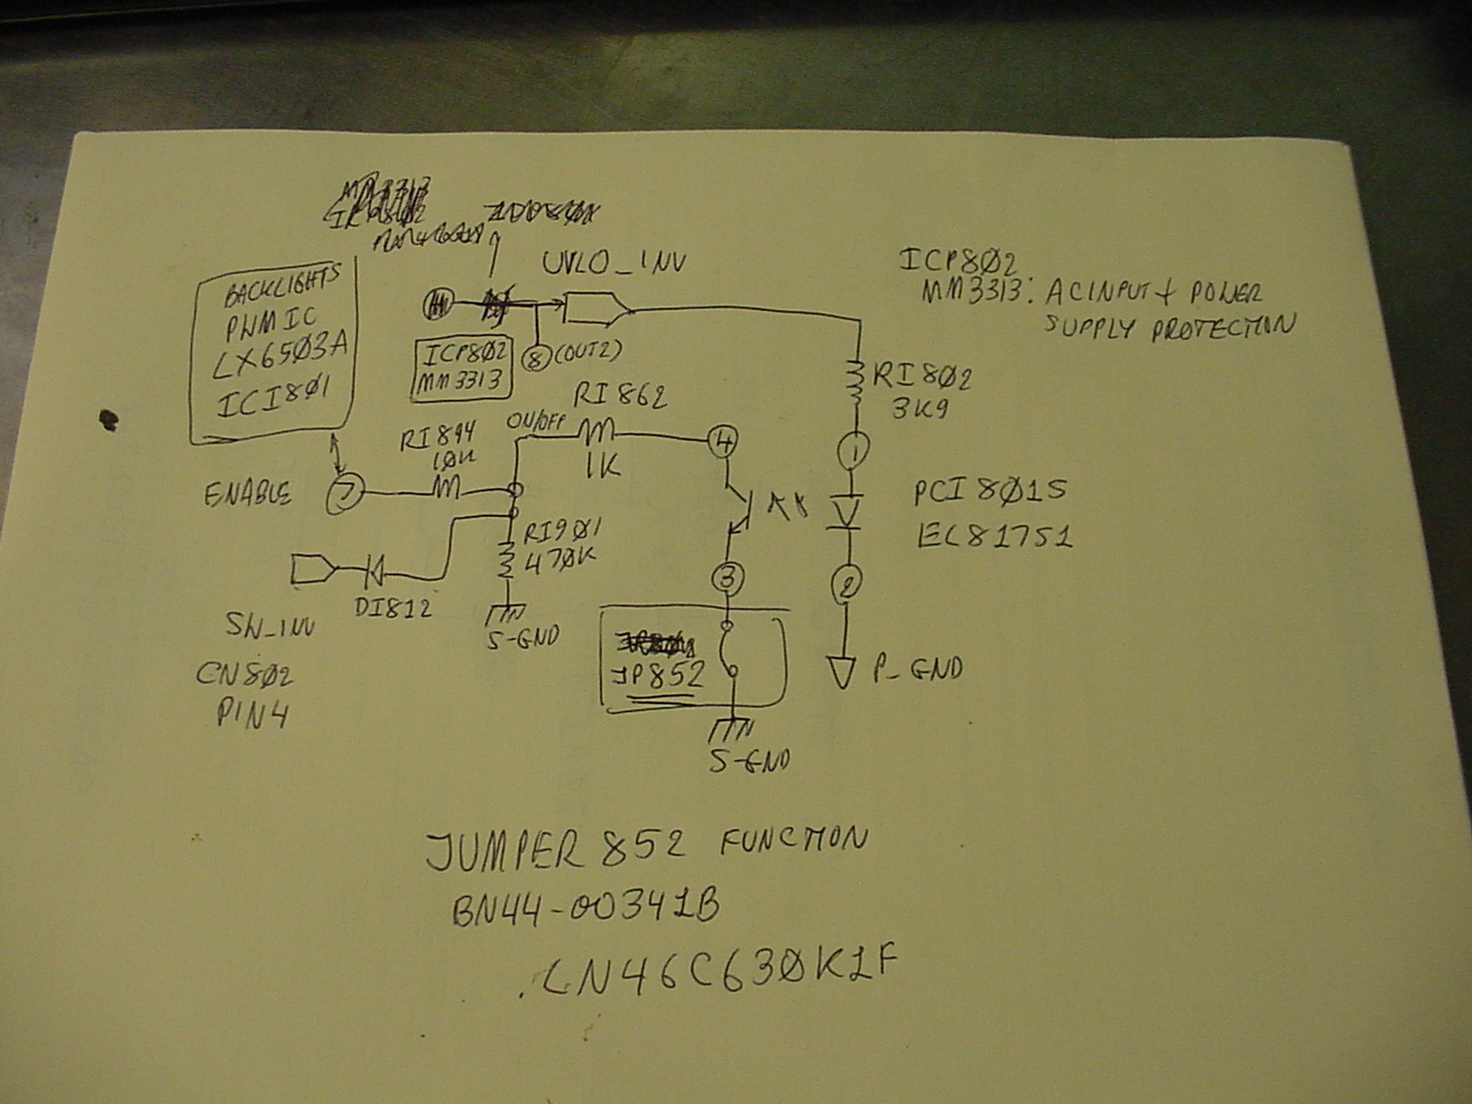 UVLO_INV
ICP802
MM3313: AC INPUT + POWER
SUPPLY PROTECTION
BACKLIGHTS
PWM IC
LX6503A
ICI801
ICP802
MM3313
8 (OUT2)
RI802
3K9
RI862
1K
ON/OFF
RI894
10K
4
1
ENABLE
7
PCI801S
EC81751
RI901
470K
S-GND
DI812
3
2
SW_INV
CN802
PIN4
JP852
P_GND
S-GND
JUMPER 852 FUNCTION
BN44-00341B
LN46C630K1F